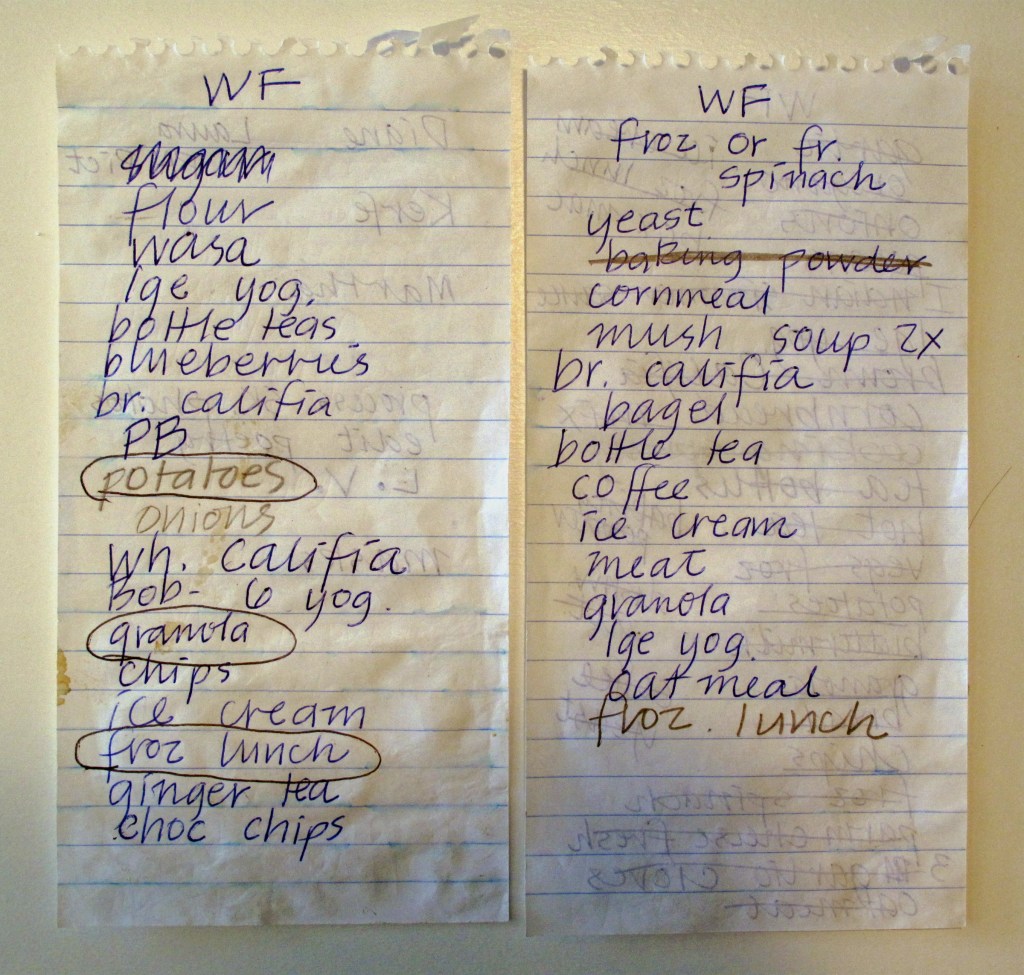 WF
sugar
flour
wasa
lge yog.
bottle teas
blueberries
br. califia
PB
potatoes
onions
wh. califia
Bob- 6 yog.
granola
chips
ice cream
froz lunch
ginger tea
choc chips
WF
froz or fr.
spinach
yeast
baking powder
cornmeal
mush soup 2x
br. califia
bagel
bottle tea
coffee
ice cream
meat
granola
lge yog.
oatmeal
froz. lunch